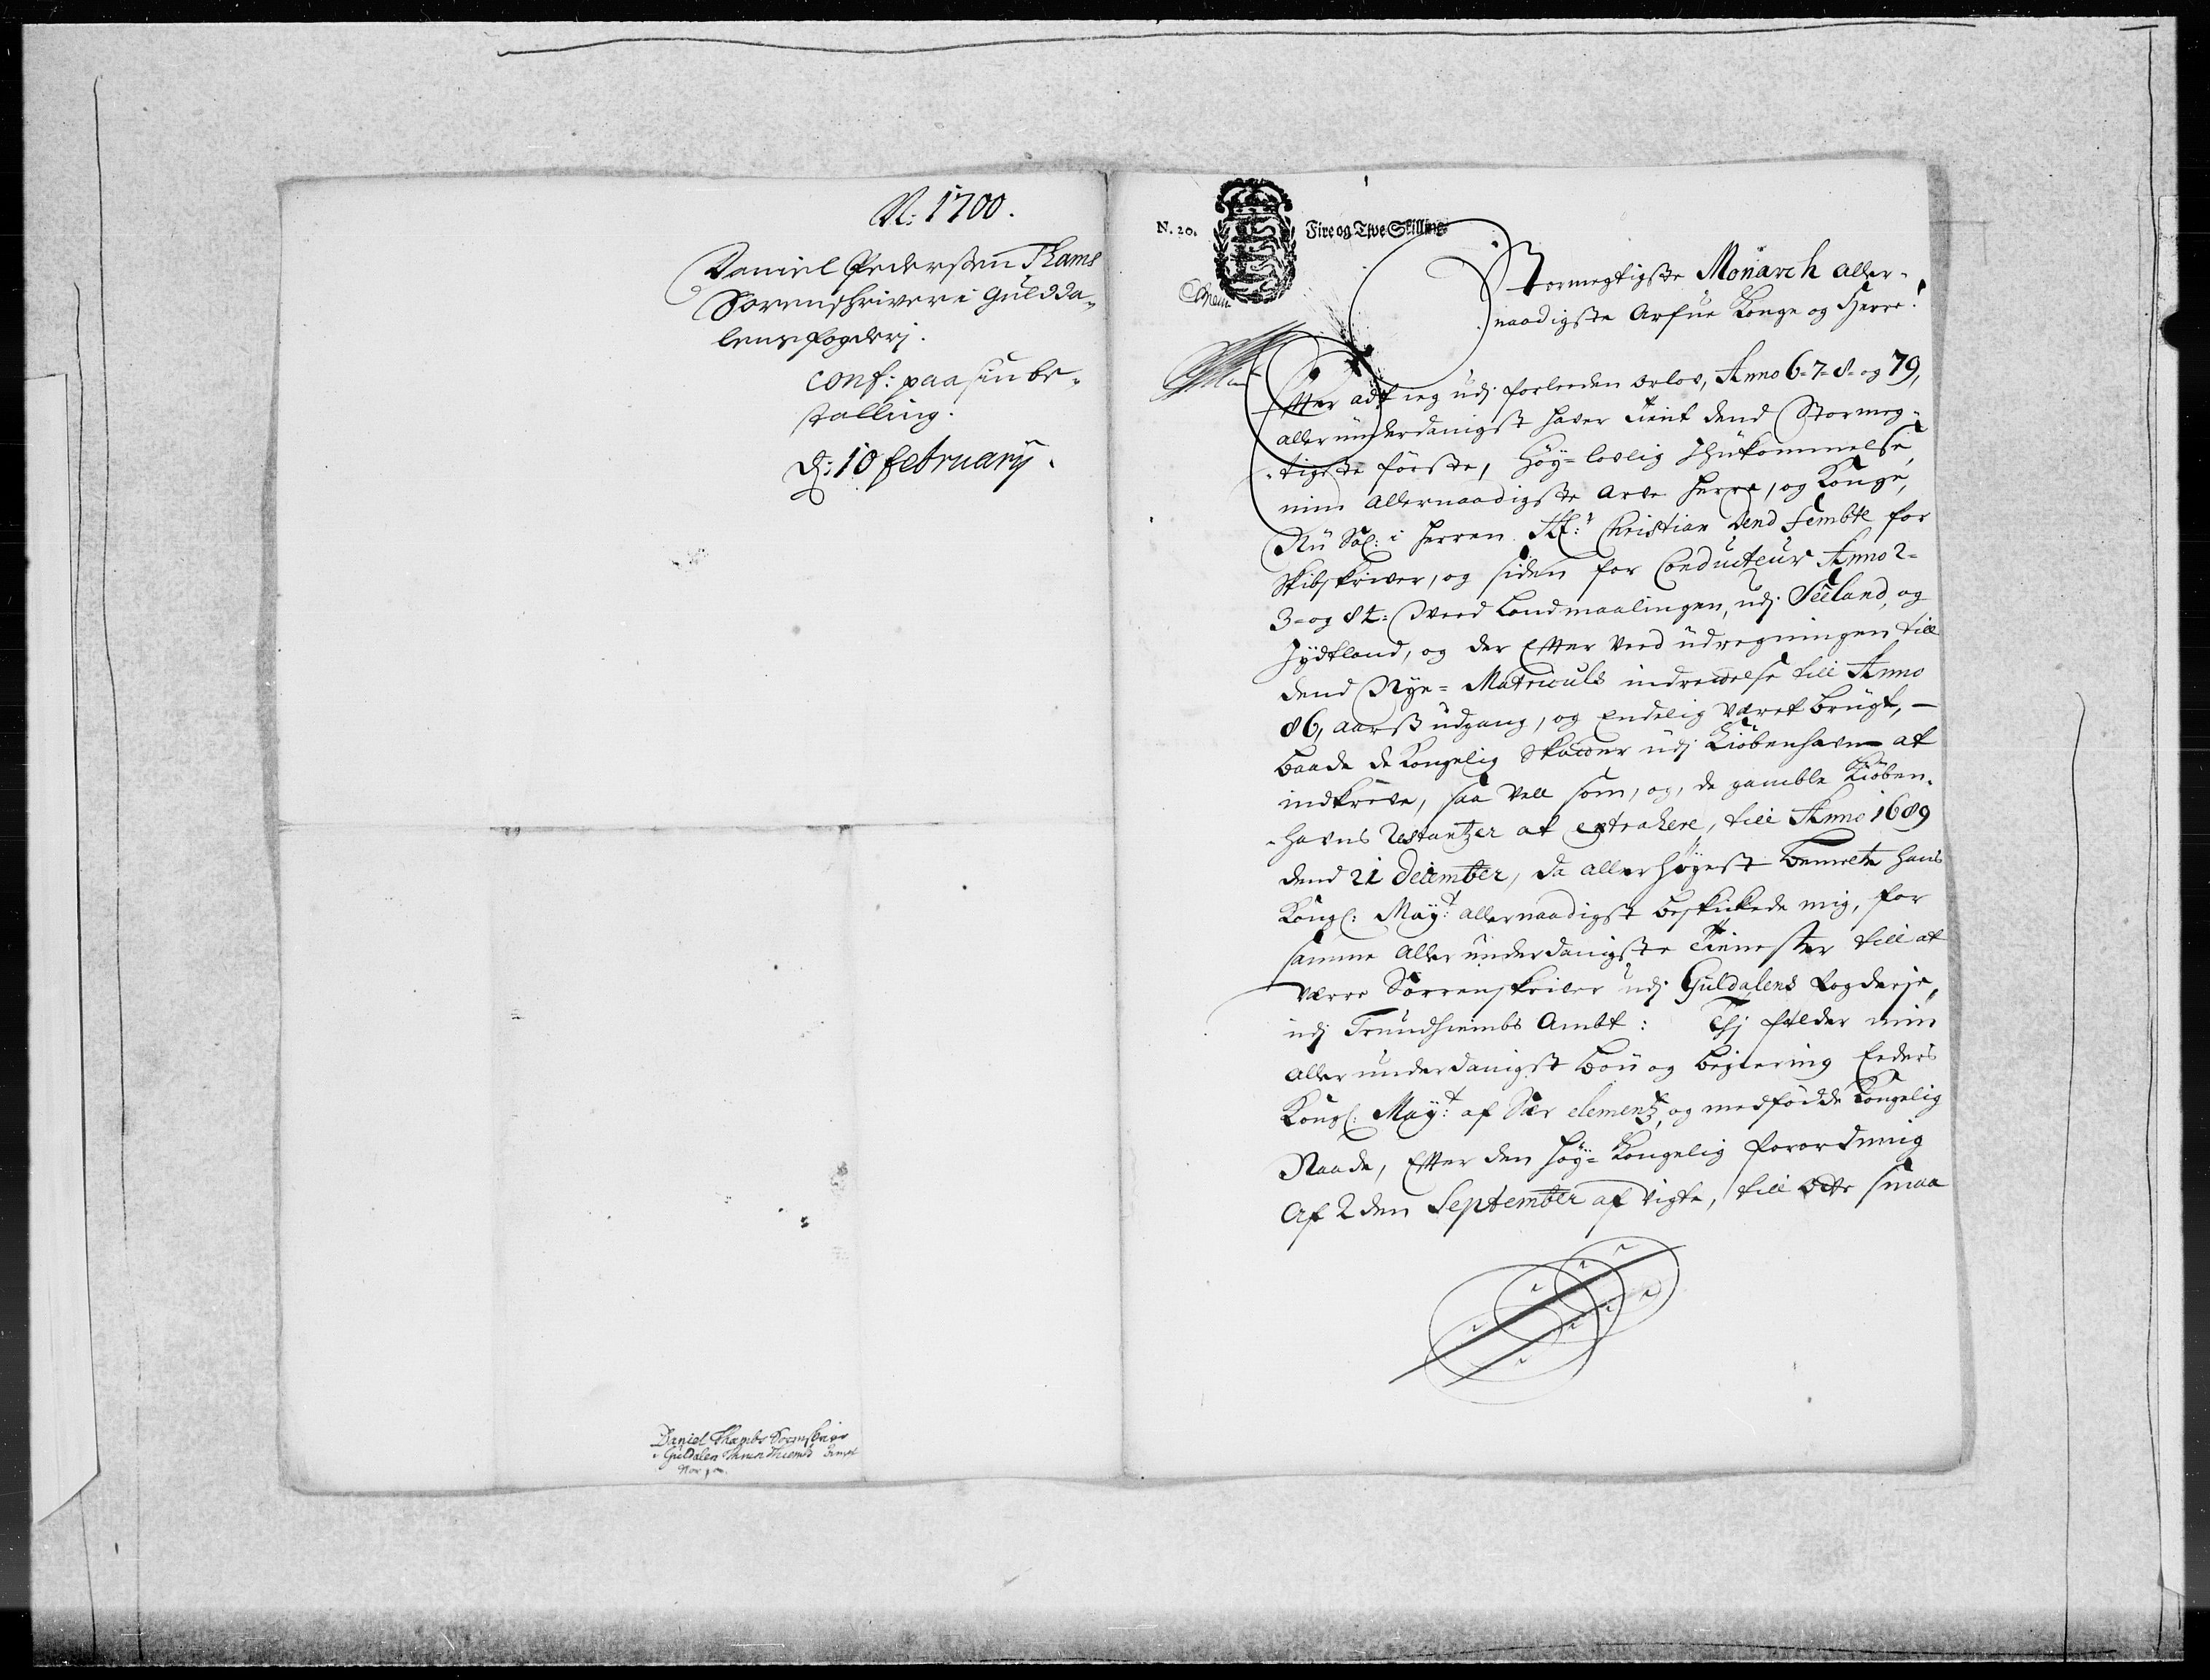 N: 1700.
Daniel Pedersenn Thams
Sorenschriver i Guldda-
lens fogderj.
conf: paa sin be-
stalling.
d: 10 february.
Daniel Thambs Sorenskriver
i Guldalen
N. 20. Fire og Tive Skilling
Stormegtigste Monarch aller-
naadigste Arfue Konge og Herre!
Efter adt ieg udj forleeden orlov, Anno 6-7-8- og 79,
allerunderdanigst haver tient dend Stormeg-
tigste första, höy-lovlig Ihukommelse,
min allernaadigste arve herre, og Konge,
Nu Sal: i herren K: Christian dend fembte for
Skibskriver, og siden for Conducteur Anno 2-
3- og 84: Weed Landmaalingen, udj Seeland, og
Jydtland, og der Efter ved udregningen till
dend Nye- Matriculs indrettelse till Anno
86, aarss udgang, og Endelig været brugt, —
baade de Kongelig Skatter udj Kiöbenhavn at
indkreve, saa Vell som, og, de gamble Kiöben-
havns Restantzer at extrahere, till Anno 1689
dend 21 December, da allerhöyest bemelte hans
Kongl: Mayt: allernaadigst beskickede mig, for
samme allerunderdanigste Tienester till at
Være Sorrenskriver udj Guldalens Fogderje,
udj Trundhiembs Ambt: Thj falder min
allerunderdanigst bön og begiering Eders
Kongl: Mayt: af Sær clementz, og medfödde Kongelig
Naade, Efter den höy-Kongelig forordning
Af 2 den September af vigte, till smaa